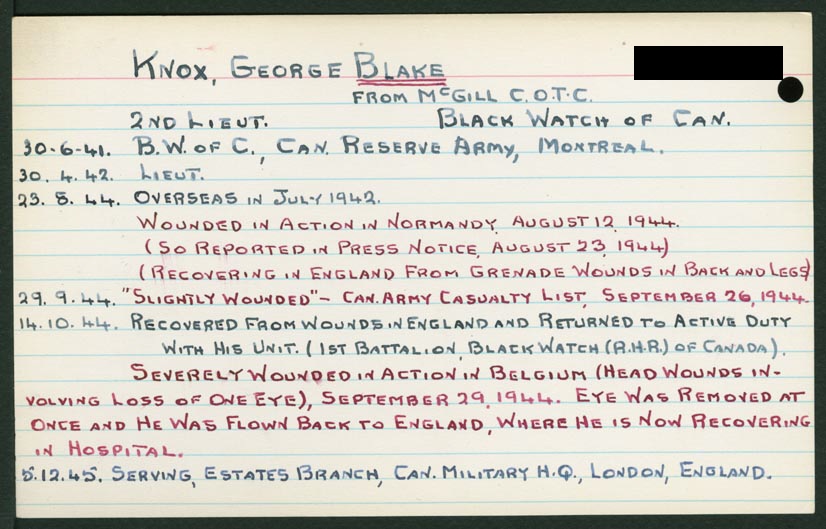 KNOX, GEORGE BLAKE
FROM McGILL C.O.T.C.
2ND LIEUT. BLACK WATCH OF CAN.
30-6-41. B.W. OF C., CAN. RESERVE ARMY, MONTREAL.
30. 4. 42. LIEUT.
23. 8. 44. OVERSEAS IN JULY 1942.
WOUNDED IN ACTION IN NORMANDY, AUGUST 12, 1944.
(SO REPORTED IN PRESS NOTICE, AUGUST 23, 1944)
(RECOVERING IN ENGLAND FROM GRENADE WOUNDS IN BACK AND LEGS)
29. 9. 44. "SLIGHTLY WOUNDED" - CAN. ARMY CASUALTY LIST, SEPTEMBER 26, 1944.
14. 10. 44. RECOVERED FROM WOUNDS IN ENGLAND AND RETURNED TO ACTIVE DUTY
WITH HIS UNIT. (1ST BATTALION, BLACK WATCH (R.H.R.) OF CANADA).
SEVERELY WOUNDED IN ACTION IN BELGIUM (HEAD WOUNDS IN-
VOLVING LOSS OF ONE EYE), SEPTEMBER 29, 1944. EYE WAS REMOVED AT
ONCE AND HE WAS FLOWN BACK TO ENGLAND, WHERE HE IS NOW RECOVERING
IN HOSPITAL.
5.12.45. SERVING, ESTATES BRANCH, CAN. MILITARY H.Q., LONDON, ENGLAND.